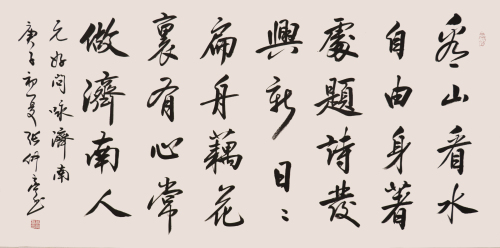 看山看水
自由身著
處題詩發
興新日〻
扁舟藕花
裏有心常
做濟南人
元好问咏濟南
庚子初夏张伊